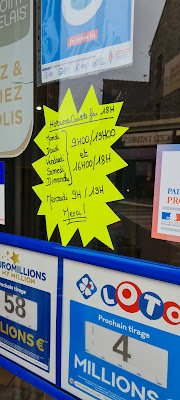 POINT
ELAIS
Z &
IEZ
OLIS
Horaires Ouverture 18H
Mardi
Jeudi
Vendredi
Samedi
Dimanche
9H00/13H00
et
16H00/18H
Mercredi 9H/13H
Merci!
PA
PRO
EUROMILLIONS
MY MILLION
Prochain tirage
58
MILLIONS€
LOTO
Prochain tirage
4
MILLIONS€